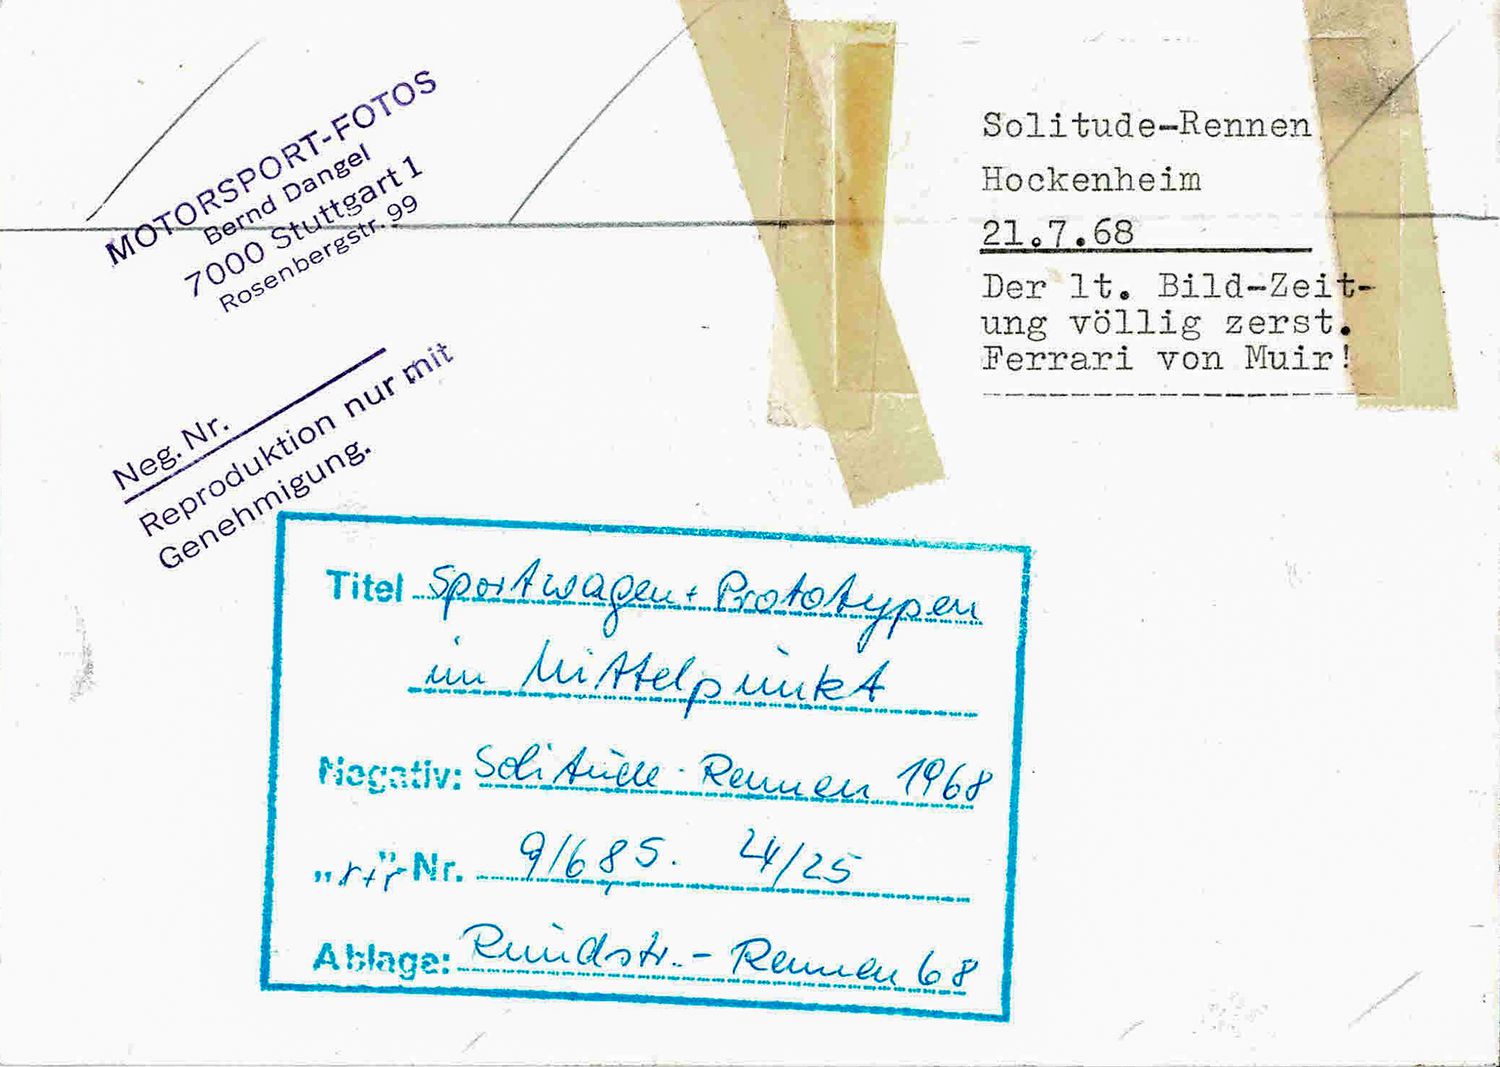 MOTORSPORT-FOTOS
Bernd Dangel
7000 Stuttgart 1
Rosenbergstr. 99
Neg. Nr.
Reproduktion nur mit
Genehmigung.
Solitude-Rennen
Hockenheim
21.7.68
Der lt. Bild-Zeit-
ung völlig zerst.
Ferrari von Muir!
Titel Sportwagen + Prototypen
im Mittelpunkt
Negativ: Solitude-Rennen 1968
Nr. 9/68 S. 24/25
Ablage: Rundstr.-Rennen 68